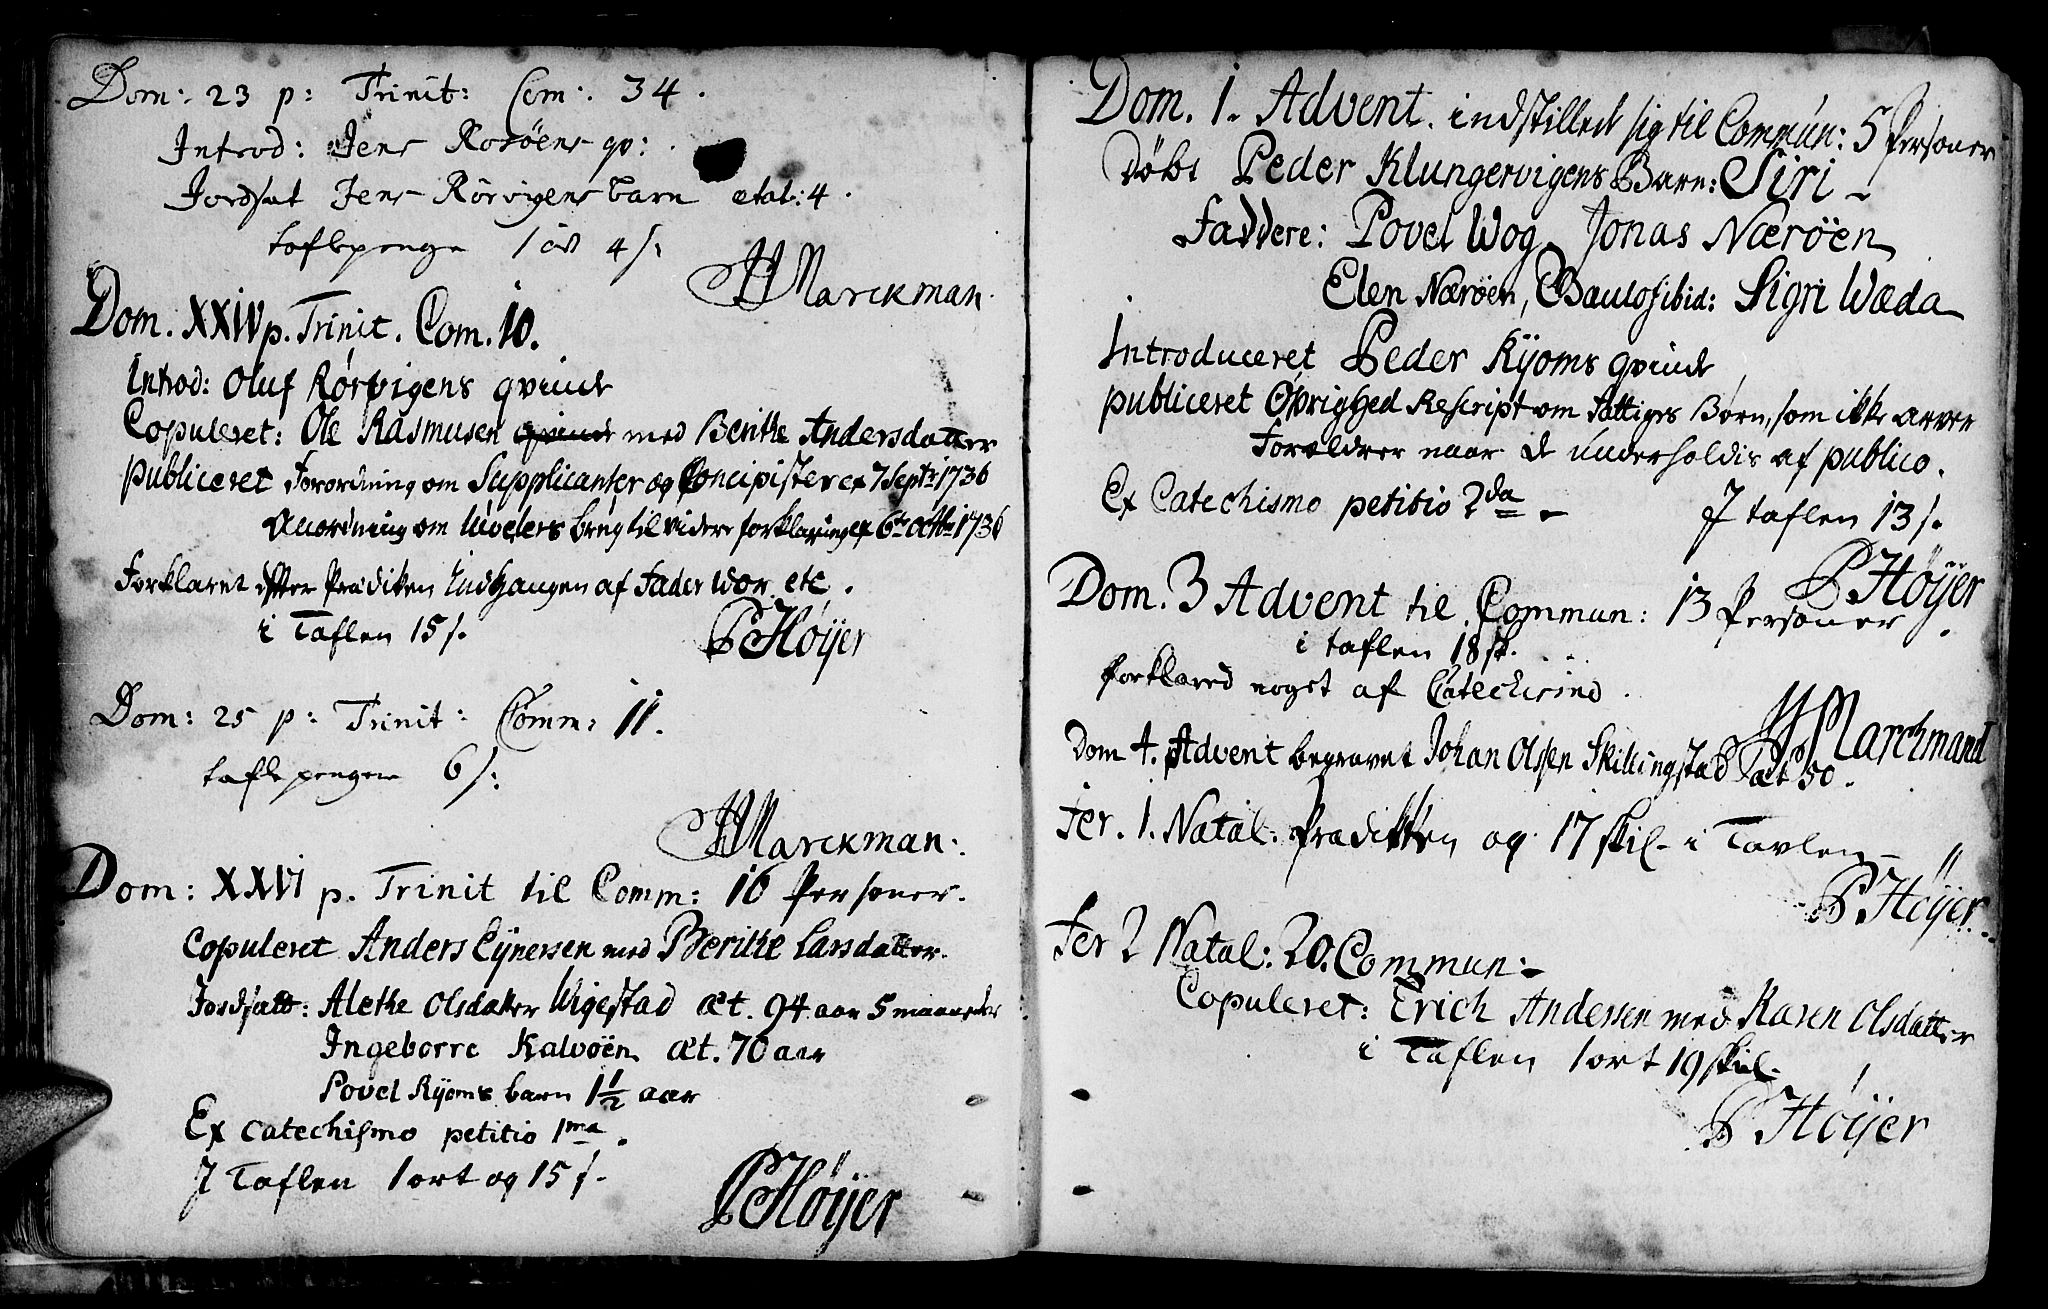 Dom: 23 p: Trinit: Com: 34.
Introd: Jens Rosøens qv:
Jordsat Jens Rørvigens barn ætat: 4.
taflepenge 1 ort 4 s:
HMarckman.
Dom. XXIV p. Trinit. Com. 10.
Introd: Oluf Rørvigens qvinde
Copuleret: Ole Rasmusen qvinde med Berithe Andersdatter
publiceret Forordning om Supplicanter og Concipister ex 7 Sept: 1736
Anordning om brug til videre forklaring ex 6te octbr 1736
Forklaret efter Prædiken Indgangen af Fader Wor etc.
i Taflen 15 s.
P Høijer
Dom: 25 p: Trinit: Comm: 11.
tafle pengene 6 s:
HMarckman.
Dom: XXVI p. Trinit til Comm: 16 Personer.
Copuleret Anders Eijnersen med Berithe Larsdatter.
Jordsatt: Alethe Olsdatter Wigestad æt. 94 aar 5 maaneder
Ingeborre Kalvøen æt. 70 aar
Povel Rijoms barn 1 1/2 aar
Ex Catechismo petitio 1ma.
J Taflen 1 ort og 15 s.
P Høijer
Dom. 1. Advent. indstilled sig til Commun: 5 Personer
Døbt Peder Klungervigens Barn: Siri
Faddere: Povel Wog, Jonas Nærøen
Elen Nærøen, Sigri Wæda
Introduceret Peder Rijoms qvinde
publiceret Øvrighed Rescript om fattiges Børn, som ikke arver
Forældrer naar de underholdis af publico.
Ex Catechismo petitio 2da
J taflen 13 s.
P Høijer
Dom. 3 Advent til Commun: 13 Personer.
i taflen 18 sk.
forklared noget af Catechismo.
HMarckmand
Dom 4. Advent begravet Johan Olssen Skillingstad æt 50.
Fer. 1. Natal. Prædikken og 17 skil. i Tavlen
P Høijer.
Fer 2 Natal: 20. Commun:
Copuleret: Erich Andersen med Karen Olsdatter
i Taflen 1 ort 19 skil.
P Høijer